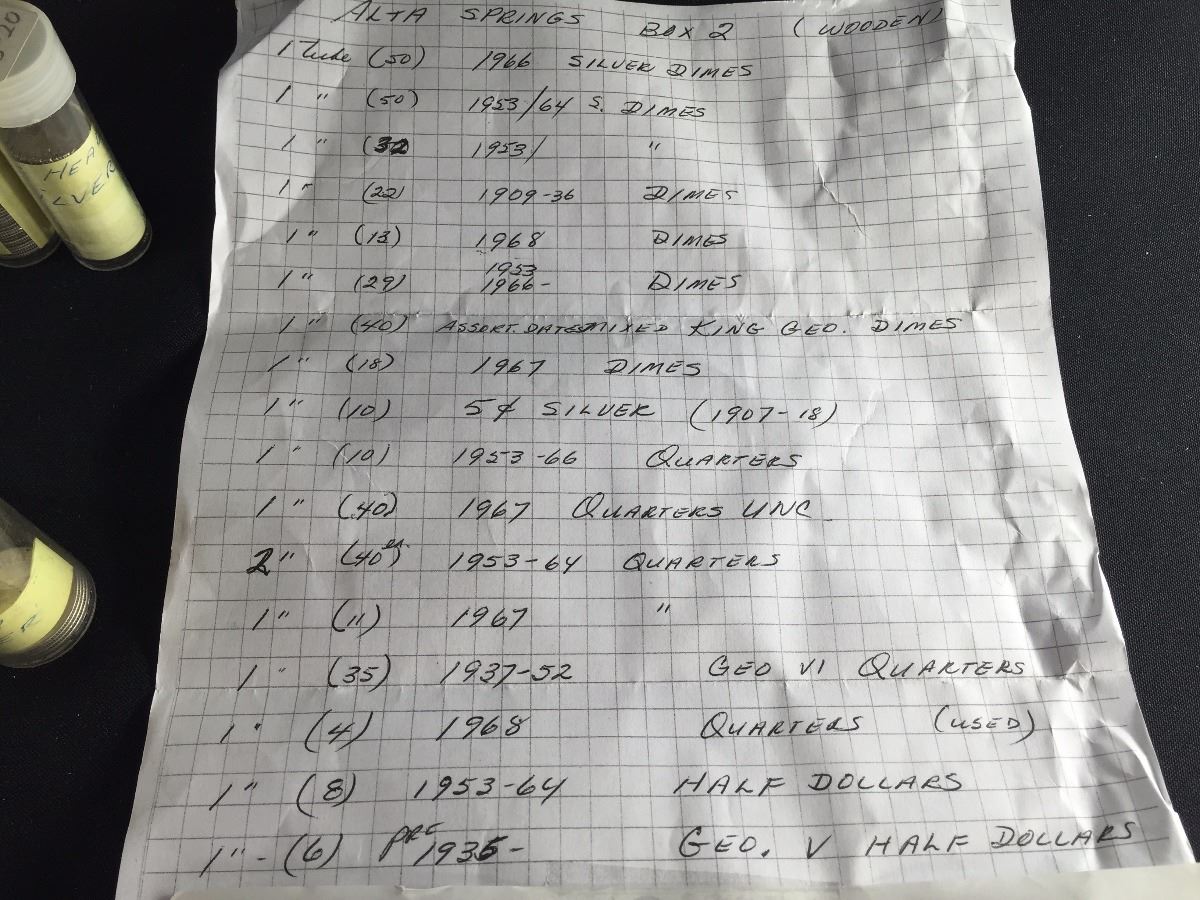 ALTA SPRINGS BOX 2 (WOODEN)
1 Tube (50) 1966 SILVER DIMES
1 " (50) 1953/64 S. DIMES
1 " (32 1953/ "
1 " (22) 1909-36 DIMES
1 " (13) 1968 DIMES
1 " (29) 1953 1966- DIMES
1 " (40) ASSORT. DATES MIXED KING GEO. DIMES
1 " (18) 1967 DIMES
1 " (10) 5¢ SILVER (1907-18)
1 " (10) 1953-66 QUARTERS
1 " (40) 1967 QUARTERS UNC
2 " (40 ea.) 1953-64 QUARTERS
1 " (11) 1967 "
1 " (35) 1937-52 GEO VI QUARTERS
1 " (4) 1968 QUARTERS (USED)
1 " (8) 1953-64 HALF DOLLARS
1 " - (6) PRE 1936- GEO. V HALF DOLLARS